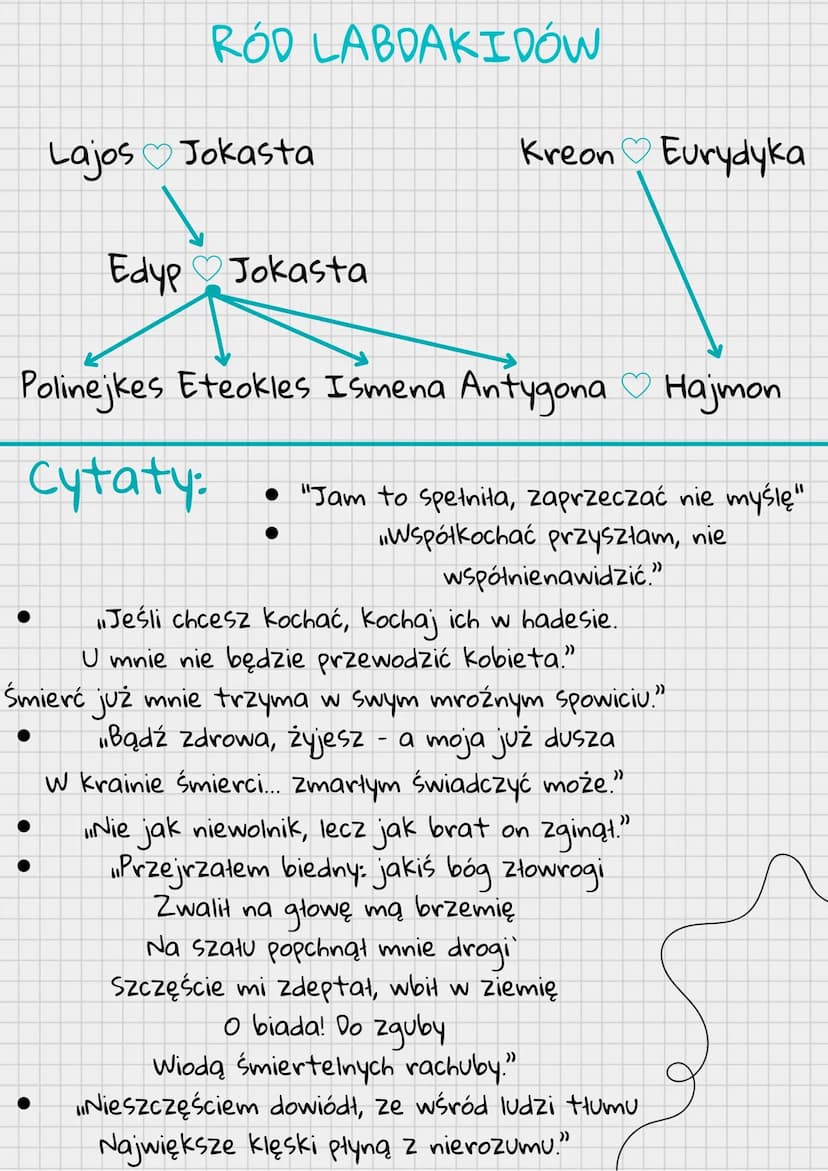 RÓD LABDAKIDÓW
Lajos ♡ Jokasta
Kreon ♡ Eurydyka
Edyp ♡ Jokasta
Polinejkes Eteokles Ismena Antygona ♡ Hajmon
Cytaty:
• "Jam to spełniła, zaprzeczać nie myślę"
• „Współkochać przyszłam, nie
współnienawidzić.”
• „Jeśli chcesz kochać, kochaj ich w hadesie.
U mnie nie będzie przewodzić kobieta.”
Śmierć już mnie trzyma w swym mroźnym spowiciu.”
• „Bądź zdrowa, żyjesz - a moja już dusza
W krainie śmierci... zmarłym świadczyć może.”
• „Nie jak niewolnik, lecz jak brat on zginął.”
• „Przejrzałem biedny: jakiś bóg złowrogi
Zwalił na głowę mą brzemię
Na szału popchnął mnie drogi`
Szczęście mi zdeptał, wbił w ziemię
O biada! Do zguby
Wiodą śmiertelnych rachuby.”
• „Nieszczęściem dowiódł, ze wśród ludzi tłumu
Największe klęski płyną z nierozumu.”